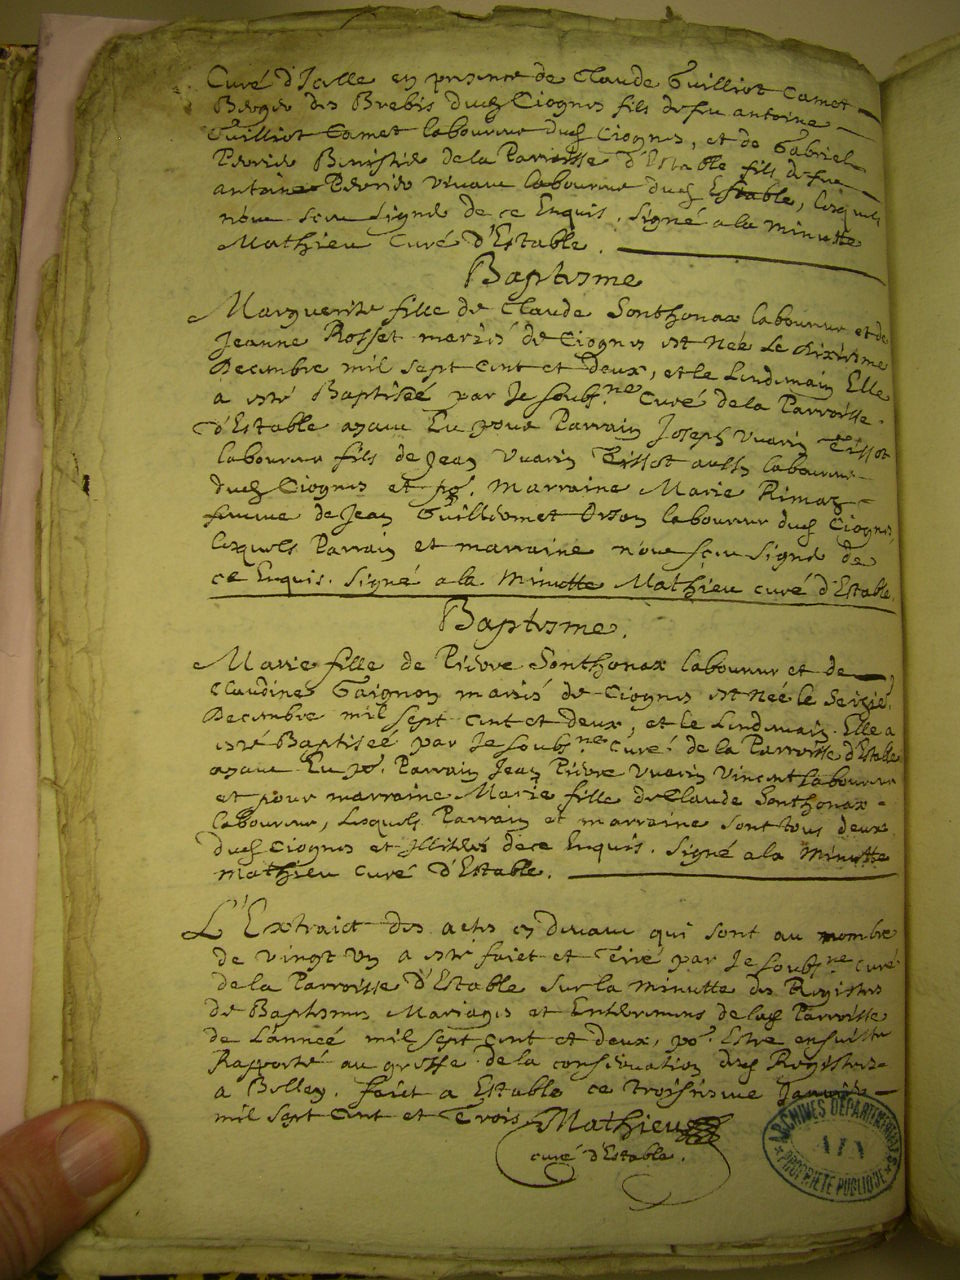 Curé d'Izelle en presence de Claude Guilliot Camet
Berger des Brebis dud. Ciognes fils de feu antoine
Guilliot Camet laboureur dud. Ciognes, et de Gabriel
de la Parroisse d'Estable fils de feu
antoine vivant laboureur dud. Estable, lesquels
n'ont sceu signer de ce Enquis. Signé a la minutte
Mathieu Curé d'Estable.
Baptesme
Marguerite fille de Claude Sonthonax laboureur et de
Jeanne Rosset mariés de Ciognes est Née Le dixiesme
Decembre mil sept cent et deux, et le Lendemain Elle
a esté Baptiséé par Je soubs.ne Curé de la Parroisse
d'Estable ayant Eu pour Parrain Joseph Vuarin Tissot
laboureur fils de Jean Vuarin Tissot aussy laboureur
dud. Ciognes et po. marraine Marie Rimaz
femme de Jean Guilliomet Orson laboureur dud. Ciognes,
lesquels Parrain et marraine n'ont sceu signer de
ce Enquis. Signé a la Minutte Mathieu curé d'Estable.
Baptesme.
Marie fille de Pierre Sonthonax laboureur et de
Claudine Gaignon mariés de Ciognes est Néé le
Decembre mil sept cent et deux, et le Lendemain Elle a
esté Baptiseé par Je soubs.ne Curé de la Parroisse d'Estable
ayant Eu po. Parrain Jean Pierre Vuarin Vincent laboureur
et pour marraine Marie fille de Claude Sonthonax
laboureur, Lesquels Parrain et marraine sont tous deux
dud. Ciognes et Illiteres de ce Enquis. Signé a la Minutte
Mathieu curé d'Estable.
L'Extraict des actes cy devant qui sont au nombre
de vingt un a esté faict et Tiré par Je soubs.ne curé
de la Parroisse d'Estable sur la minutte des Registres
de Baptesmes Mariages et Enterremens de lad. Parroisse
de L'année mil sept cent et deux, po. Estre ensuitte
Rapporté au greffe de la conservation desd. Registres
a Belley. faict a Estable ce troisiesme Janvier
mil sept cent et Trois. Mathieu
curé d'Estable.
ARCHIVES DEPARTEMENTALES
PROPRIETE PUBLIQUE